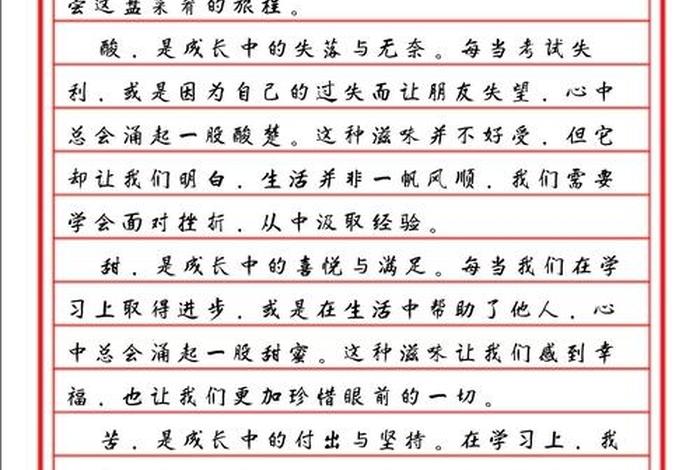 尝这盘菜肴的旅程。
酸，是成长中的失落与无奈。每当考试失
利，或是因为自己的过失而让朋友失望，心中
总会涌起一股酸楚。这种滋味并不好受，但它
却让我们明白，生活并非一帆风顺，我们需要
学会面对挫折，从中汲取经验。
甜，是成长中的喜悦与满足。每当我们在学
习上取得进步，或是在生活中帮助了他人，心
中总会涌起一股甜蜜。这种滋味让我们感到幸
福，也让我们更加珍惜眼前的一切。
苦，是成长中的付出与坚持。在学习上，我